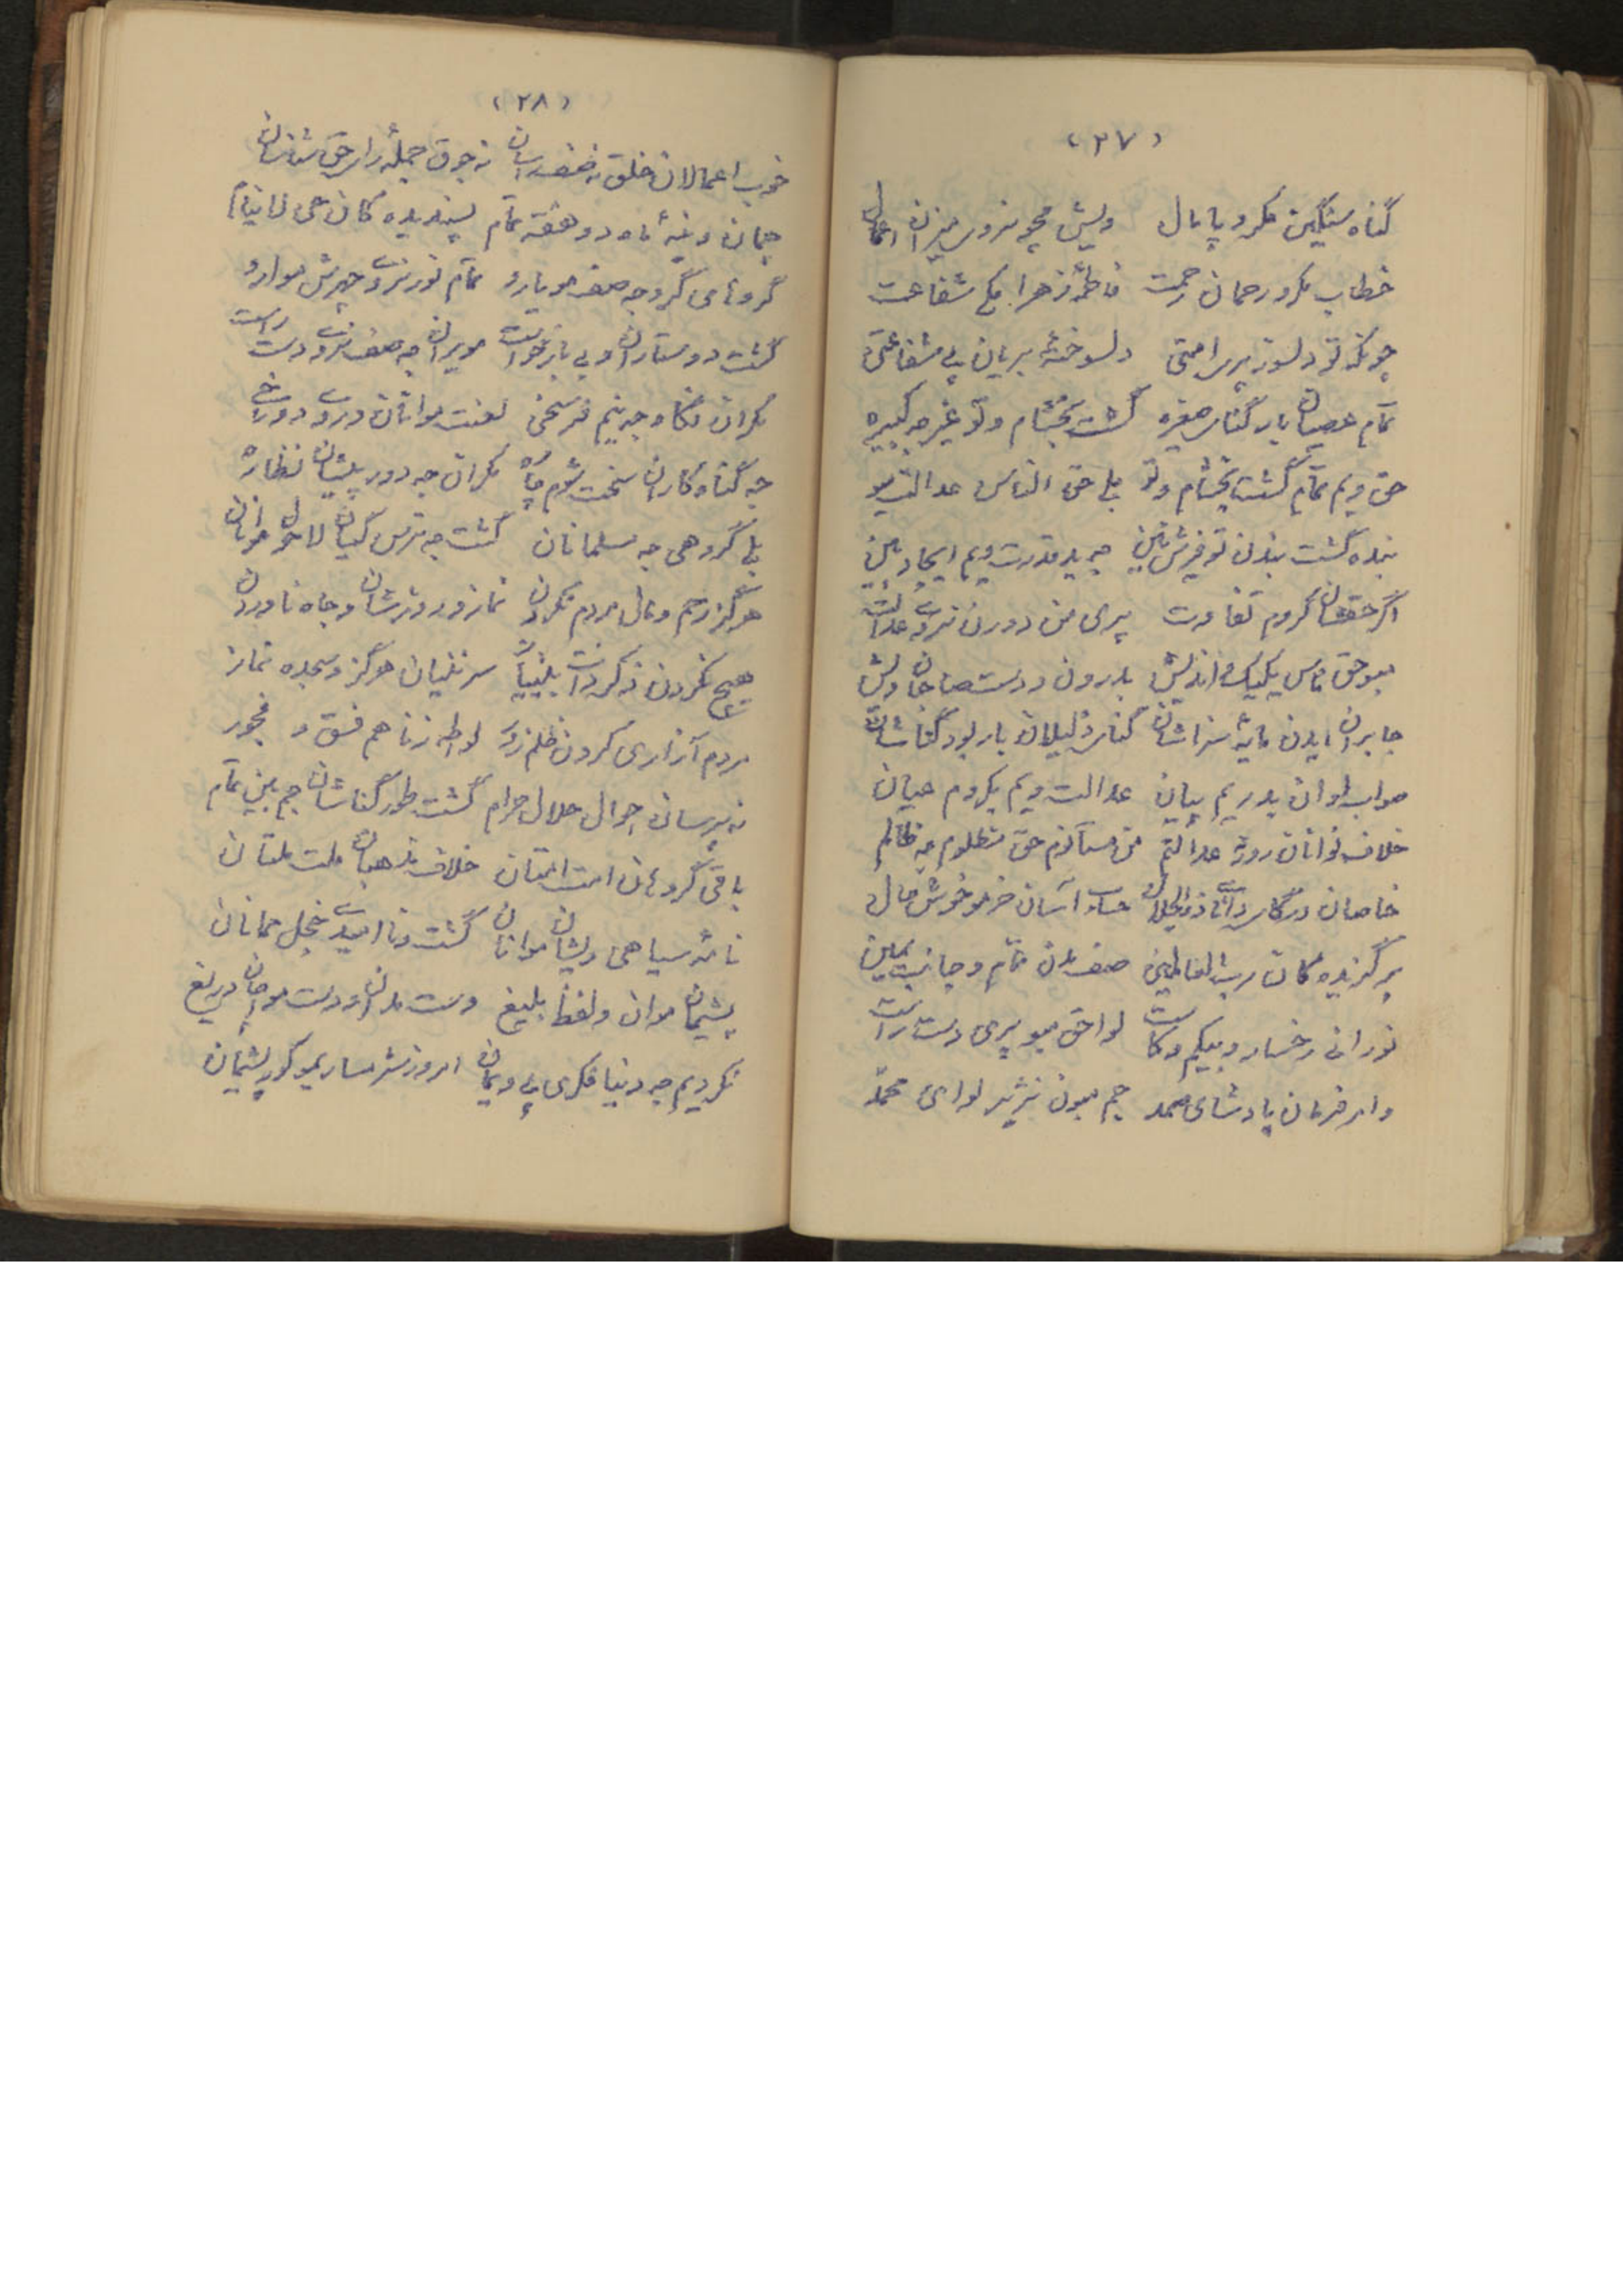 (۲۷)
گناه سنگین مکرد پامال ویش مچو نروی میزان اعمال
خطاب مکرد رحمان رحمت فاطمه زهرا بکم شفاعت
چونکه تو دلسوز پری امتی دلسوخته بریان پی شفاعتی
تمام عصیان بار گنای صغیره گشت بخشام وتو غیر جه کبیره
حق ویم تمام گشت بخشام وتو بلی حق الناس عدالت بو
بنده گشت بندن تو فرش زمین جه ید قدرت ویم ایجاد بین
اگر حقشان کروم تفاوت پری من دورن نروی عدالت
مبو حق ناس یکیک اندیش بدرون ودست صاحبان ویش
جابران ایدن مایه سزاشان گنای ذلیلان بار بو گناشان
صواب اوان بدریم بیان عدالت ویم بکروم عیان
خلاف نوانان روژ عدالتم من مستانم حق مظلوم جه ظالم
خاصان درگای دانای ذوالجلال حساب آسان خرم و خوش حال
برگزیده کان رب العالمین صف مدن تمام و جانب یمین
نورانی رخسار و بیکم وکاست لواحق مبو پری دست راست
وامر فرمان پادشای صمد جم مبون نه ژیر لوای محمد
(۲۸)
خوب اعمالان خلق نه صف رسان نه جوق جمله رای حق شناسان
چمان وینه ماه دو هفته تمام پسندیده کان حی لاینام
گروهای گروه جه صف مویارو تمام نور نروی چهرش موارو
گشت دوستاران و بی بازخواست مویران جه صف نروی دست راست
مکران نگاه وجه نیم فرسخی لعنت موانان وروی دوزخی
جه گناه کاران سخت شوم چاره مکران جه دور پیشان نظاره
بلی گروهی جه مسلمانان گشت جه ترس گیان لاحول موانان
هرگز رحم ومال مردم نکردن نماز و روزشان وجاه ناوردن
هیچ نکردن ذکر ذات بینیاز سر ننیان هرگز وسجده نماز
مردم آزاری کردن ظلم زور لواطه زنا هم فسق و فجور
نه پرسان احوال حلال حرام گشت طور گناشان جم بین تمام
باقی گروهان امت امتان خلاف مذهبان ملت ملتان
نامه سیاهی ویشان موانان گشت و نا امیدی خجل ممانان
پشیمان موان ولفظ بلیغ دست مدان اودست مواچان دریغ
نکردیم جه دنیا فکری پی ویمان امروز شرمسار یمو کور پشیمان